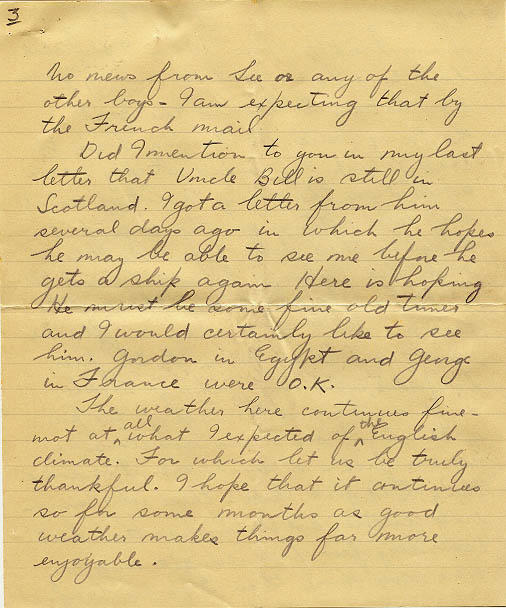 3
No news from Lee or any of the
other boys - I am expecting that by
the French mail
Did I mention to you in my last
letter that Uncle Bill is still in
Scotland. I got a letter from him
several days ago in which he hopes
he may be able to see me before he
gets a ship again Here is hoping
He must be some fine old timer
and I would certainly like to see
him. Gordon in Egypt and George
in France were O.K.
The weather here continues fine -
not at all what I expected of the English
climate. For which let us be truly
thankful. I hope that it continues
so for some months as good
weather makes things far more
enjoyable.